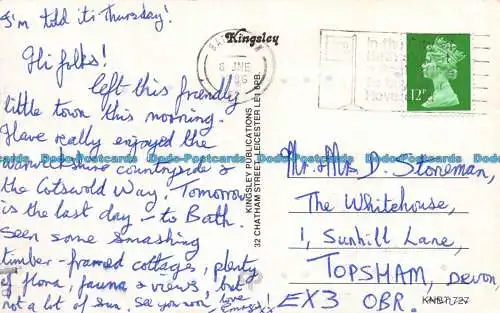 I'm told it's Thursday!
Hi folks!
left this friendly
little town this morning.
Have really enjoyed the
Warwickshire countryside &
the Cotswold Way. Tomorrow
is the last day – to Bath.
Seen some smashing
timber-framed cottages, plenty
of flora, fauna & views, but
not a lot of sun. See you soon
love
Kingsley
KINGSLEY PUBLICATIONS
32 CHATHAM STREET LEICESTER LE1 6PB.
6 JNE
12P
Mr. & Mrs D. Stoneman,
The Whitehouse,
1, Sunhill Lane,
TOPSHAM, DEVON,
EX3 0BR.
KNBT 727
Dodo-Postcards Dodo-Postcards Dodo-Postcards Dodo-Postcards